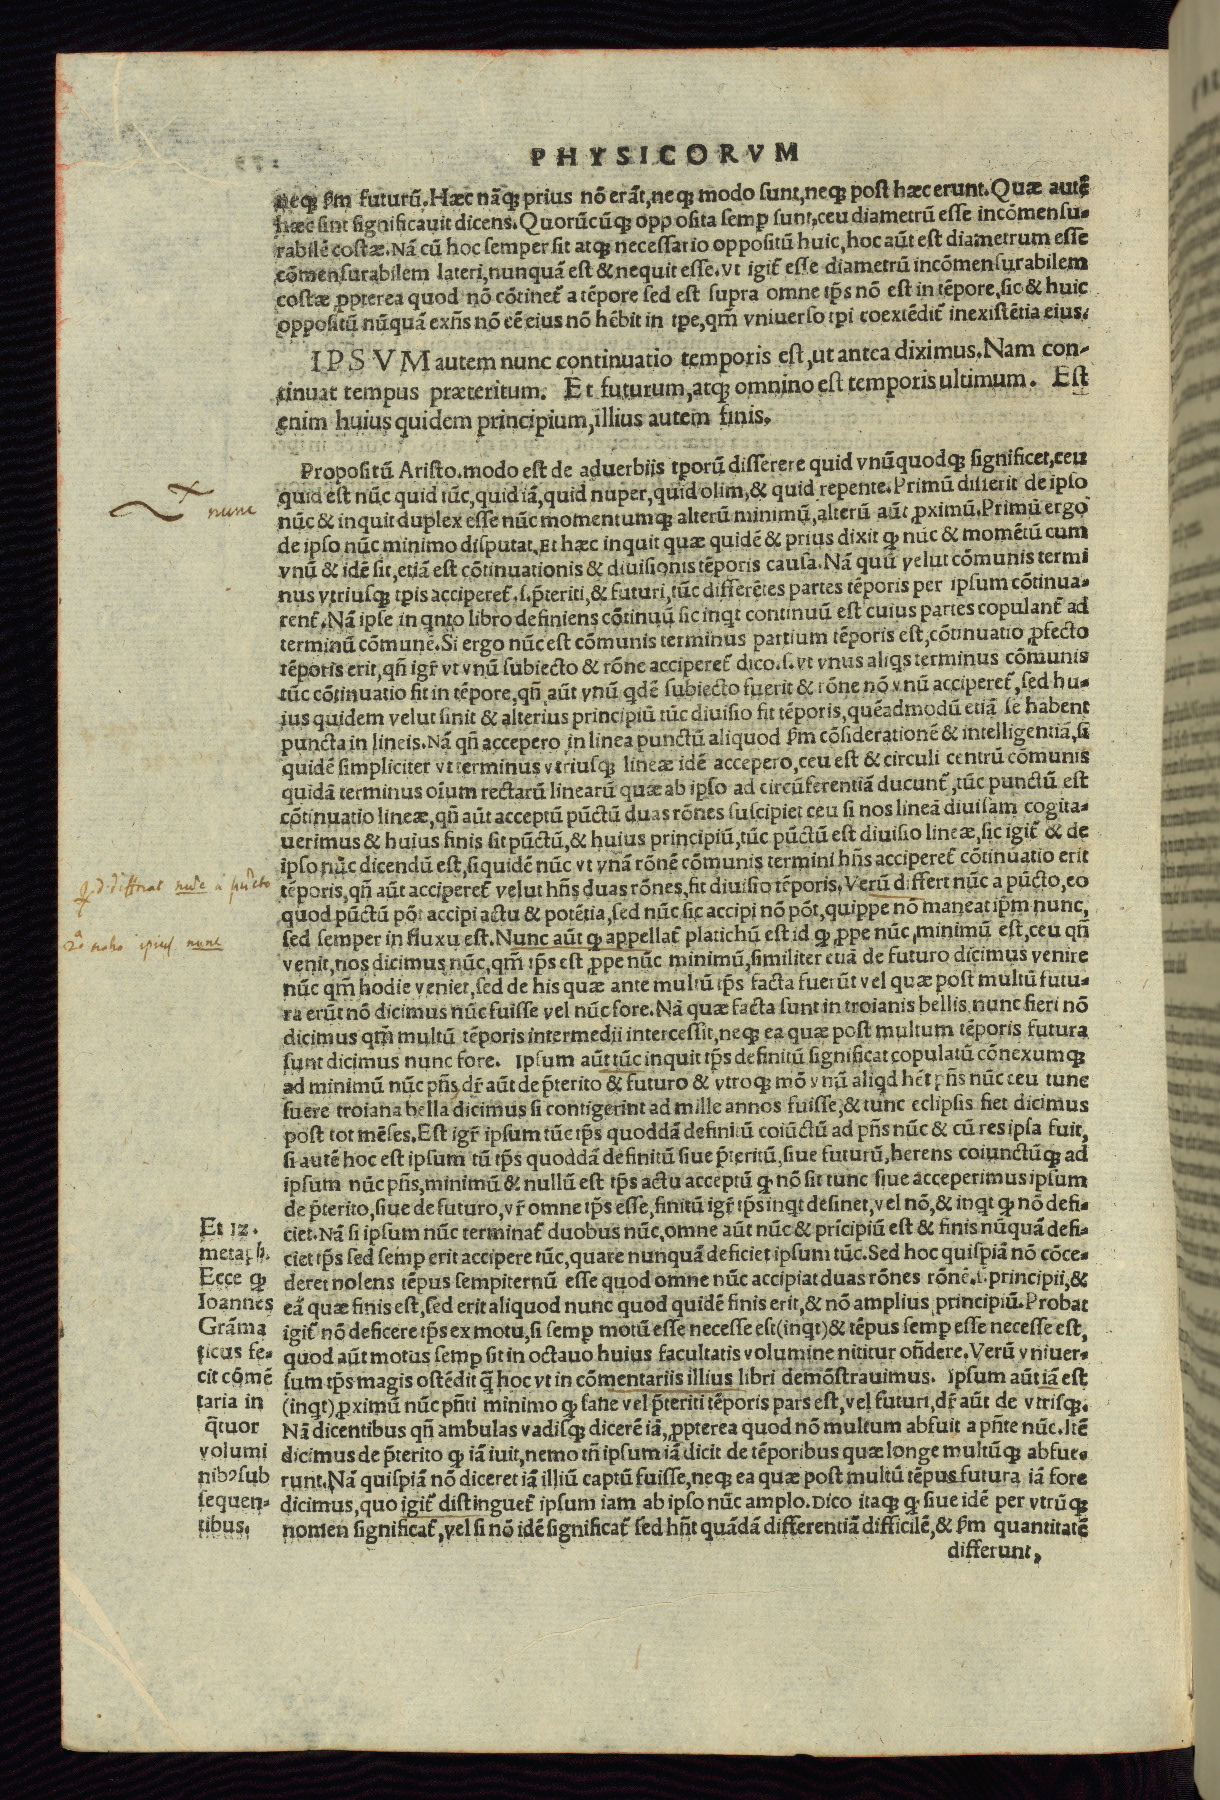 PHYSICORVM
neqꝫ ſm futurũ. Hæc nãqꝫ prius nõ erãt, neqꝫ modo sunt, neqꝫ post hæc erunt. Quæ autẽ
hæc sint significauit dicens. Quorũcũqꝫ opposita semꝑ sunt, ceu diametrũ esse incõmensu-
rabilẽ costæ. Nã cũ hoc semper sit atqꝫ necessario oppositũ huic, hoc aũt est diametrum esse
cõmensurabilem lateri, nunquã est & nequit esse. vt igit̃ esse diametrũ incõmensurabilem
costæ ꝓpterea quod nõ cõtinet̃ a tẽpore sed est supra omne tp̃s nõ est in tẽpore, sic & huic
oppositũ nũquã exñs nõ eẽ eius nõ hẽbit in tp̃e, qm̃ vniuerso tp̃i coextẽdit̃ inexistẽtia eius.
IPSVM autem nunc continuatio temporis est, ut antea diximus. Nam con-
tinuat tempus præteritum. Et futurum, atqꝫ omnino est temporis ultimum. Est
enim huius quidem principium, illius autem finis.
Propositũ Aristo. modo est de aduerbiis tp̃orũ disserere quid vnũquodqꝫ significet, ceu
quid est nũc quid tũc, quid iã, quid nuper, quid olim, & quid repente. Primũ disserit de ipso
nũc & inquit duplex esse nũc momentumqꝫ alterũ minimũ, alterũ aũt ꝓximũ. Primũ ergo
de ipso nũc minimo disputat. Et hæc inquit quæ quidẽ & prius dixit ꝙ nũc & momẽtũ cum
vnũ & idẽ sit, etiã est cõtinuationis & diuisionis tẽporis causa. Nã quũ velut cõmunis termi
nus vtriusqꝫ tp̃is acciperet̃. s. p̃teriti, & futuri, tũc differẽtes partes tẽporis per ipsum cõtinua-
rent̃. Nã ipse in qnto libro definiens cõtinuũ sic inqt continuũ est cuius partes copulant̃ ad
terminũ cõmunẽ. Si ergo nũc est cõmunis terminus partium tẽporis est, cõtinuatio ꝓfecto
tẽporis erit, qñ igr̃ vt vnũ subiecto & rõne acciperet̃ dico. s. vt vnus aliqs terminus cõmunis
tũc cõtinuatio fit in tẽpore, qñ aũt vnũ qdẽ subiecto fuerit & rõne nõ vnũ acciperet̃, sed hu-
ius quidem velut sinit & alterius principiũ tũc diuisio fit tẽporis, quẽadmodũ etiã se habent
puncta in lineis. Nã qñ accepero in linea punctũ aliquod ſm cõsiderationẽ & intelligentiã, si
quidẽ simpliciter vt terminus vtriusqꝫ lineæ idẽ accepero, ceu est & circuli centrũ cõmunis
quidã terminus oĩum rectarũ linearũ quæ ab ipso ad circũferentiã ducunt̃, tũc punctũ est
cõtinuatio lineæ, qñ aũt acceptũ pũctũ duas rõnes suscipiet ceu si nos lineã diuisam cogita-
uerimus & huius finis sit pũctũ, & huius principiũ, tũc pũctũ est diuisio lineæ, sic igit̃ & de
ipso nũc dicendũ est, si quidẽ nũc vt vnã rõnẽ cõmunis termini hñs acciperet̃ cõtinuatio erit
tẽporis, qñ aũt acciperet̃ velut hñs duas rõnes, fit diuisio tẽporis. Verũ differt nũc a pũcto, eo
quod pũctũ põt accipi actu & potẽtia, sed nũc sic accipi nõ põt, quippe nõ maneat ip̃m nunc,
sed semper in fluxu est. Nunc aũt ꝙ appellat̃ platichũ est id ꝙ ꝓpe nũc, minimũ est, ceu qñ
venit, nos dicimus nũc, qm̃ tp̃s est ꝓpe nũc minimũ, similiter etiã de futuro dicimus venire
nũc qm̃ hodie veniet, sed de his quæ ante multũ tp̃s facta fuerũt vel quæ post multũ futu-
ra erũt nõ dicimus nũc fuisse vel nũc fore. Nã quæ facta sunt in troianis bellis nunc fieri nõ
dicimus qm̃ multũ tẽporis intermedii intercessit, neqꝫ ea quæ post multum tẽporis futura
sunt dicimus nunc fore. Ipsum aũt tũc inquit tp̃s definitũ significat copulatũ cõnexumqꝫ
ad minimũ nũc pñs, dr̃ aũt de p̃terito & futuro & vtroqꝫ mõ vnũ aliqd hẽt pñs nũc ceu tunc
fuere troiana bella dicimus si contigerint ad mille annos fuisse, & tunc eclipsis fiet dicimus
post tot mẽses. Est igr̃ ipsum tũc tp̃s quoddã definitũ coiũctũ ad pñs nũc & cũ res ipsa fuit,
si autẽ hoc est ipsum tũ tp̃s quoddã definitũ siue p̃teritũ, siue futurũ, herens coiunctũqꝫ ad
ipsum nũc pñs, minimũ & nullũ est tp̃s actu acceptũ ꝙ nõ sit tunc siue acceperimus ipsum
de p̃terito, siue de futuro, vr̃ omne tp̃s esse, finitũ igr̃ tp̃s inqt desinet, vel nõ, & inqt ꝙ nõ defi-
ciet. Nã si ipsum nũc terminat̃ duobus nũc, omne aũt nũc & prĩcipiũ est & finis nũquã defi-
ciet tp̃s sed semꝑ erit accipere tũc, quare nunquã deficiet ipsum tũc. Sed hoc quispiã nõ cõce-
deret nolens tẽpus sempiternũ esse quod omne nũc accipiat duas rõnes rõnẽ. s. principii, &
eã quæ finis est, sed erit aliquod nunc quod quidẽ finis erit, & nõ amplius principiũ. Probat
igit̃ nõ deficere tp̃s ex motu, si semꝑ motũ esse necesse est (inqt) & tẽpus semꝑ esse necesse est,
quod aũt motus semꝑ sit in octauo huius facultatis volumine nititur oñdere. Verũ vniuer-
sum tp̃s magis ostẽdit q̃ hoc vt in cõmentariis illius libri demõstrauimus. Ipsum aũt iã est
(inqt) ꝓximũ nũc pñti minimo ꝙ sane vel p̃teriti tẽporis pars est, vel futuri, dr̃ aũt de vtrisqꝫ.
Nã dicentibus qñ ambulas vadisqꝫ dicerẽ iã, ꝓpterea quod nõ multum abfuit a pñte nũc. Itẽ
dicimus de p̃terito ꝙ iã iuit, nemo tñ ipsum iã dicit de tẽporibus quæ longe multũqꝫ abfue-
runt. Nã quispiã nõ diceret iã illiũ captũ fuisse, neqꝫ ea quæ post multũ tẽpus futura iã fore
dicimus, quo igit̃ distinguet̃ ipsum iam ab ipso nũc amplo. Dico itaqꝫ ꝙ siue idẽ per vtrũqꝫ
nomen significat̃, vel si nõ idẽ significat̃ sed hñt quãdã differentiã difficilẽ, & ſm quantitatẽ
differunt,
nunc
Et 12.
metaph.
Ecce ꝙ
Ioannes
Grãma
ticus fe-
cit cõmẽ
taria in
q̃tuor
volumi
nibꝰ sub
sequen-
tibus.